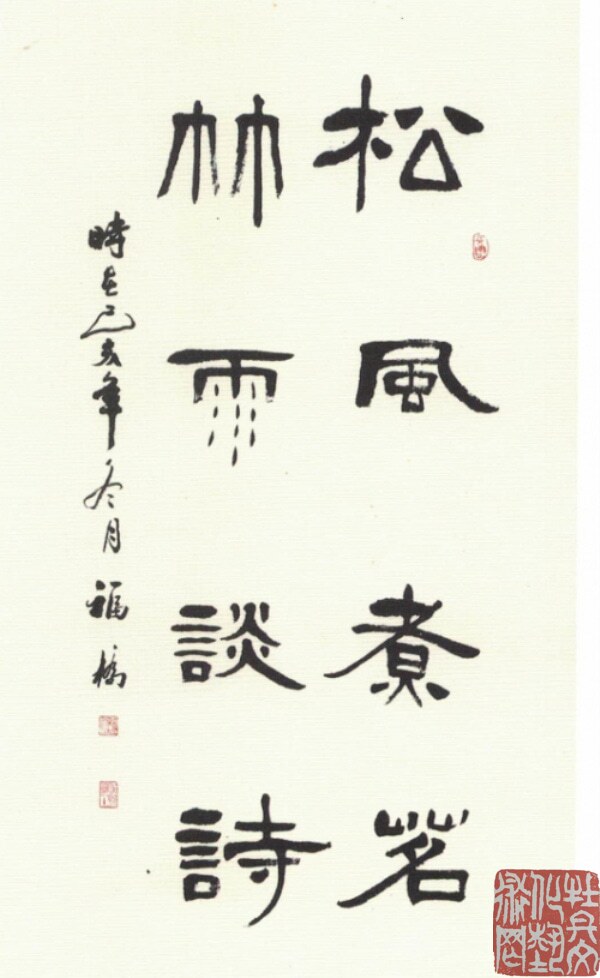 松風煮茗
竹雨談詩
時在己亥年冬月福橋